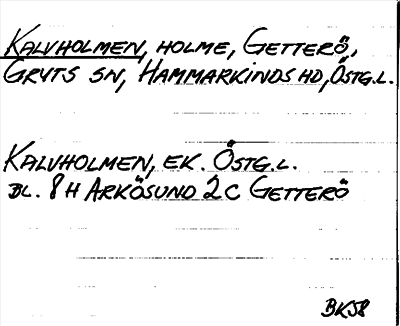 KALVHOLMEN, HOLME, GETTERÖ,
GRYTS SN, HAMMARKINDS HD, ÖSTG.L.
KALVHOLMEN, EK. ÖSTG.L.
BL. 8 H ARKÖSUND 2C GETTERÖ
BK58